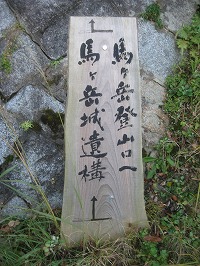 馬ヶ岳登山口へ
馬ヶ岳城遺構